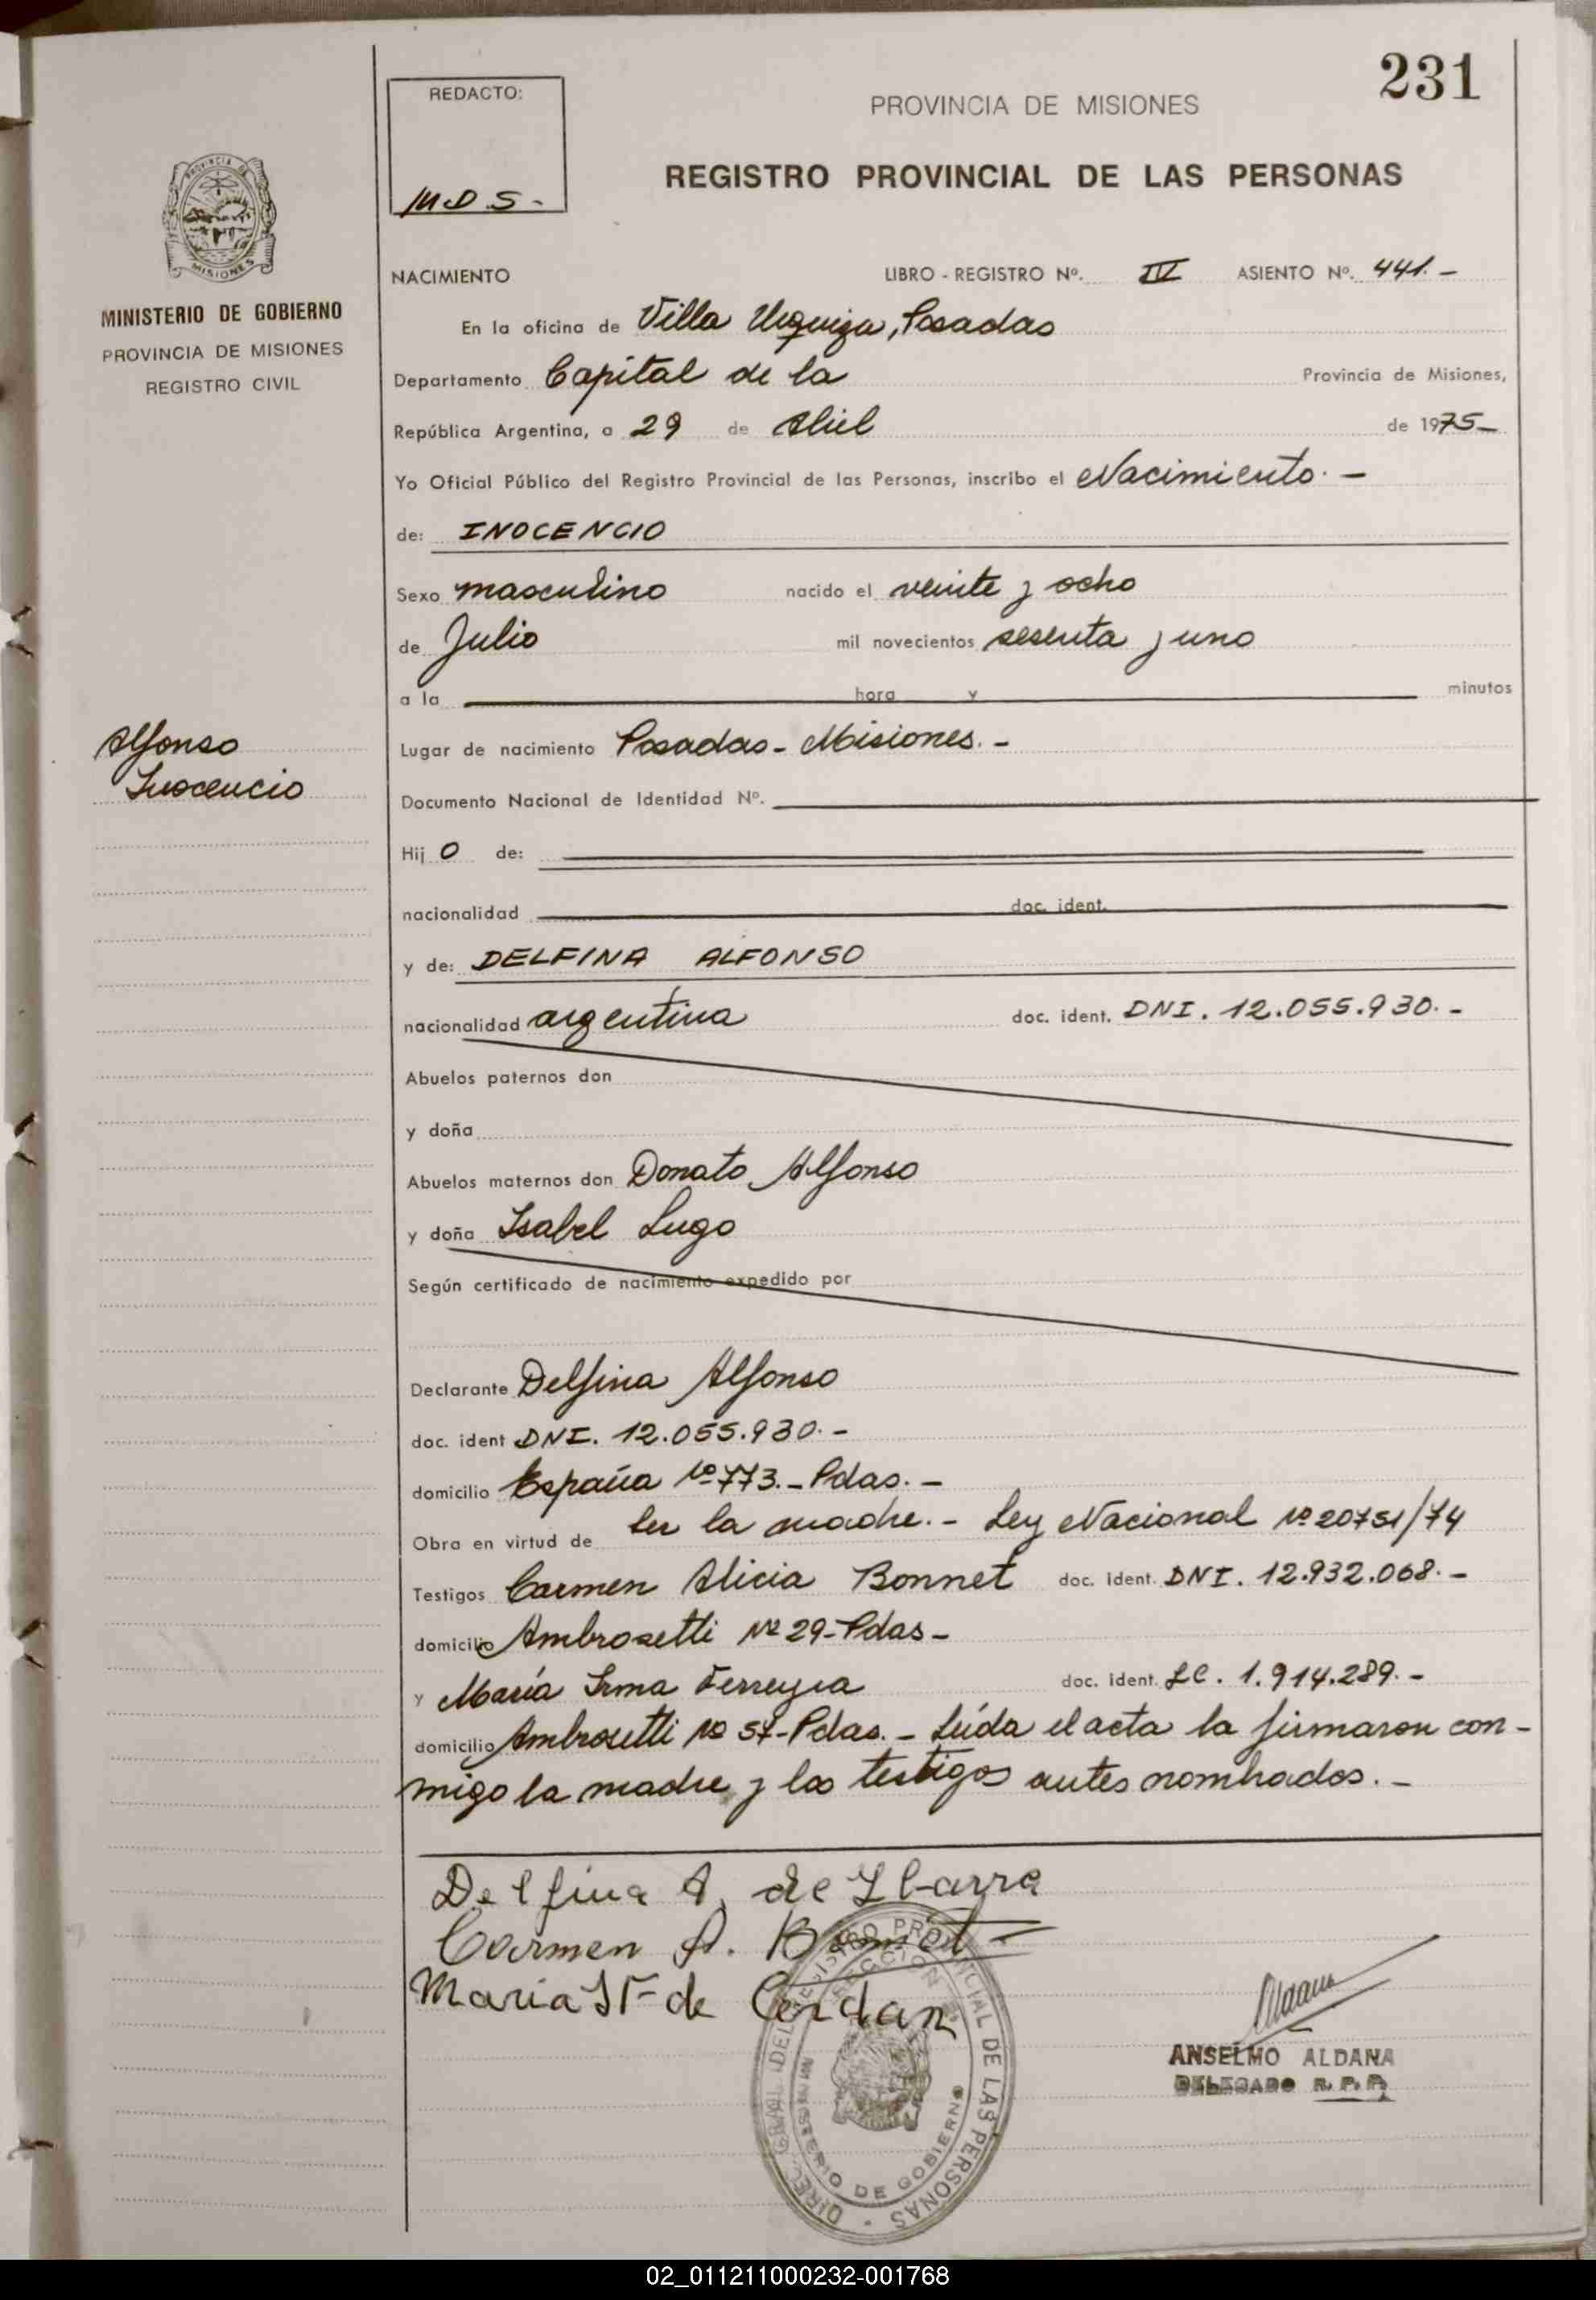 231
REDACTO:
M.D.S.-
PROVINCIA DE MISIONES
REGISTRO PROVINCIAL DE LAS PERSONAS
PROVINCIA DE
MISIONES
MINISTERIO DE GOBIERNO
PROVINCIA DE MISIONES
REGISTRO CIVIL
NACIMIENTO LIBRO - REGISTRO Nº. IV ASIENTO Nº. 441.-
En la oficina de Villa Urquiza, Posadas
Departamento Capital de la Provincia de Misiones,
República Argentina, a 29 de Abril de 1975-
Yo Oficial Público del Registro Provincial de las Personas, inscribo el Nacimiento.-
de: INOCENCIO
Sexo masculino nacido el veinte y ocho
de Julio mil novecientos sesenta y uno
a la hora y minutos
Alfonso
Inocencio
Lugar de nacimiento Posadas- Misiones.-
Documento Nacional de Identidad Nº.
Hij o de:
nacionalidad doc. ident.
y de: DELFINA ALFONSO
nacionalidad argentina doc. ident. DNI. 12.055.930.-
Abuelos paternos don
y doña
Abuelos maternos don Donato Alfonso
y doña Isabel Lugo
Según certificado de nacimiento expedido por
Declarante Delfina Alfonso
doc. ident DNI. 12.055.930.-
domicilio España Nº 773.- Pdas.-
Obra en virtud de ser la madre.- Ley Nacional Nº 20751/74
Testigos Carmen Alicia Bonnet doc. ident. DNI. 12.932.068.-
domicilio Ambrosetti Nº 29-Pdas-
y María Irma Ferreyra doc. ident. LC. 1.914.289.-
domicilio Ambrosetti Nº 57-Pdas.- Leída el acta la firmaron con-
migo la madre y los testigos antes nombrados.-
Delfina A. de Ybarra
Carmen A. Bonnet
Maria I F de Cerdan
DIREC. GRAL. DEL REGISTRO PROVINCIAL DE LAS PERSONAS
MINISTERIO DE GOBIERNO
ANSELMO ALDANA
DELEGADO R. P. P.
02_011211000232-001768